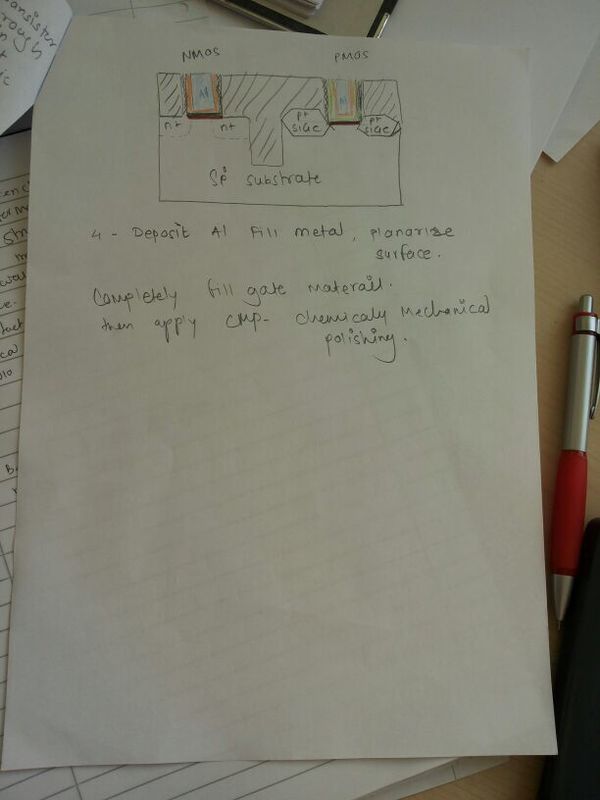 ansister
rough
n
NMOS
PMOS
Al
Al
n+
n+
p+
SiGe
p+
SiGe
Si substrate
4 - Deposit Al Fill metal, planarize
surface.
Completely fill gate materail.
then apply CMP- chemicaly Mechanical
polishing.